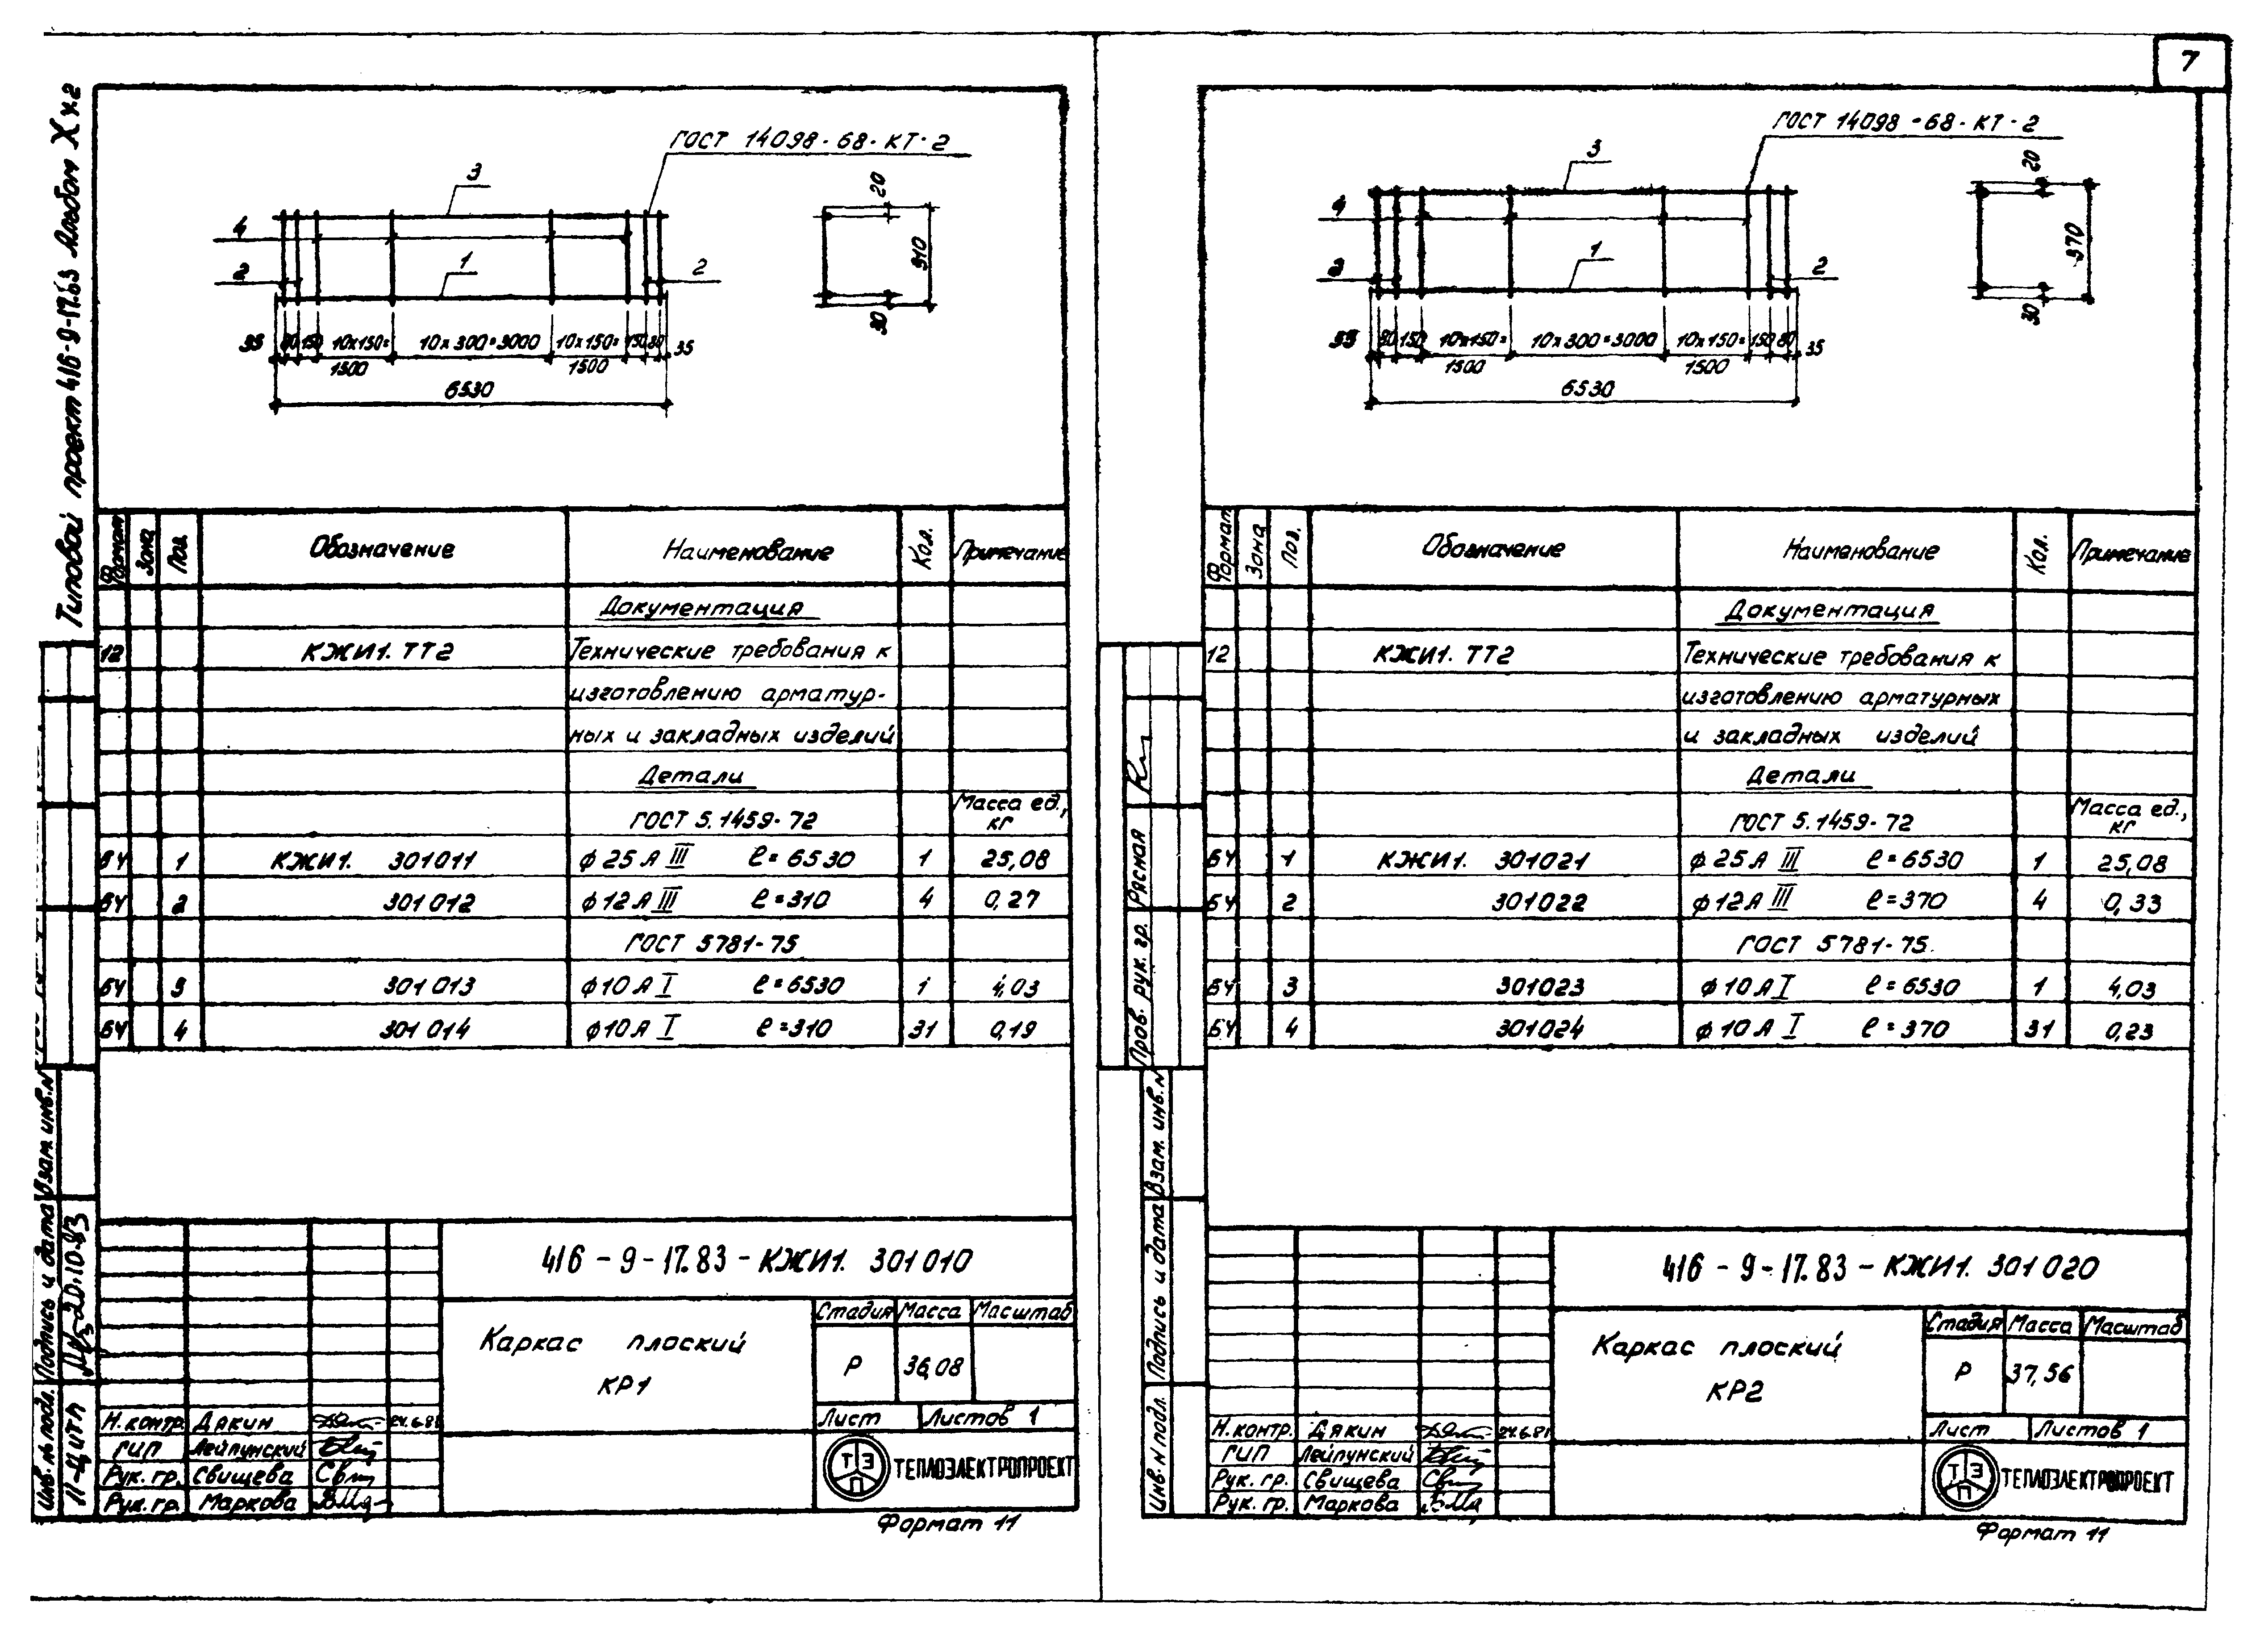 7
Типовой проект 416-9-17.83 Альбом X ч.2
ГОСТ 14098-68-КТ-2
3
4
1
2
2
20
310
30
35 80 150 10х150= 10х300=3000 10х150= 150 80 35
1500 1500
6530
Формат Зона Поз. Обозначение Наименование Кол. Примечание
Документация
12 КЖИ1. ТТ2 Технические требования к
изготовлению арматур-
ных и закладных изделий
Детали
ГОСТ 5.1459-72 Масса ед., кг
БЧ 1 КЖИ1. 301011 ф25АIII ℓ=6530 1 25,08
БЧ 2 301012 ф12АIII ℓ=310 4 0,27
ГОСТ 5781-75
БЧ 3 301013 ф10АI ℓ=6530 1 4,03
БЧ 4 301014 ф10АI ℓ=310 31 0,19
416-9-17.83-КЖИ1. 301010
Каркас плоский
КР1
Стадия Масса Масштаб
Р 36,08
Лист Листов 1
Н.контр. Дякин 24.6.81
ГИП Лейпунский
Рук. гр. Свищева
Рук. гр. Маркова
ТЭП ТЕПЛОЭЛЕКТРОПРОЕКТ
Формат 11
Инв. № подл. Подпись и дата Взам. инв. N
20.10.83
ГОСТ 14098-68-КТ-2
3
4
1
2
2
20
370
30
35 80 150 10х150= 10х300=3000 10х150= 150 80 35
1500 1500
6530
Формат Зона Поз. Обозначение Наименование Кол. Примечание
Документация
12 КЖИ1. ТТ2 Технические требования к
изготовлению арматурных
и закладных изделий
Детали
ГОСТ 5.1459-72 Масса ед., кг
БЧ 1 КЖИ1. 301021 ф25АIII ℓ=6530 1 25,08
БЧ 2 301022 ф12АIII ℓ=370 4 0,33
ГОСТ 5781-75
БЧ 3 301023 ф10АI ℓ=6530 1 4,03
БЧ 4 301024 ф10АI ℓ=370 31 0,23
416-9-17.83-КЖИ1. 301020
Каркас плоский
КР2
Стадия Масса Масштаб
Р 37,56
Лист Листов 1
Н.контр. Дякин 24.6.81
ГИП Лейпунский
Рук. гр. Свищева
Рук. гр. Маркова
ТЭП ТЕПЛОЭЛЕКТРОПРОЕКТ
Формат 11
Пров. рук. гр. Расная
Инв. N подл. Подпись и дата Взам. инв. N